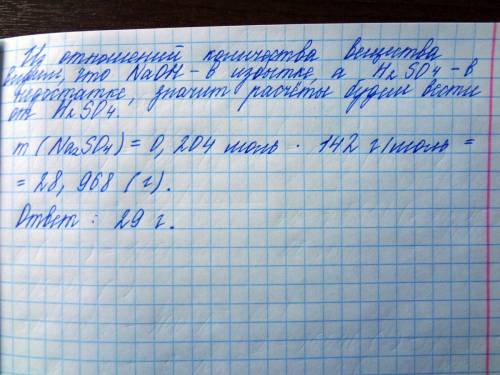 Из отношений количества вещества
видим, что NaOH - в избытке, а H₂SO₄ - в
недостатке, значит расчёты будем вести
от H₂SO₄.
m (Na₂SO₄) = 0, 204 моль · 142 г/моль =
= 28, 968 (г).
Ответ : 29 г.